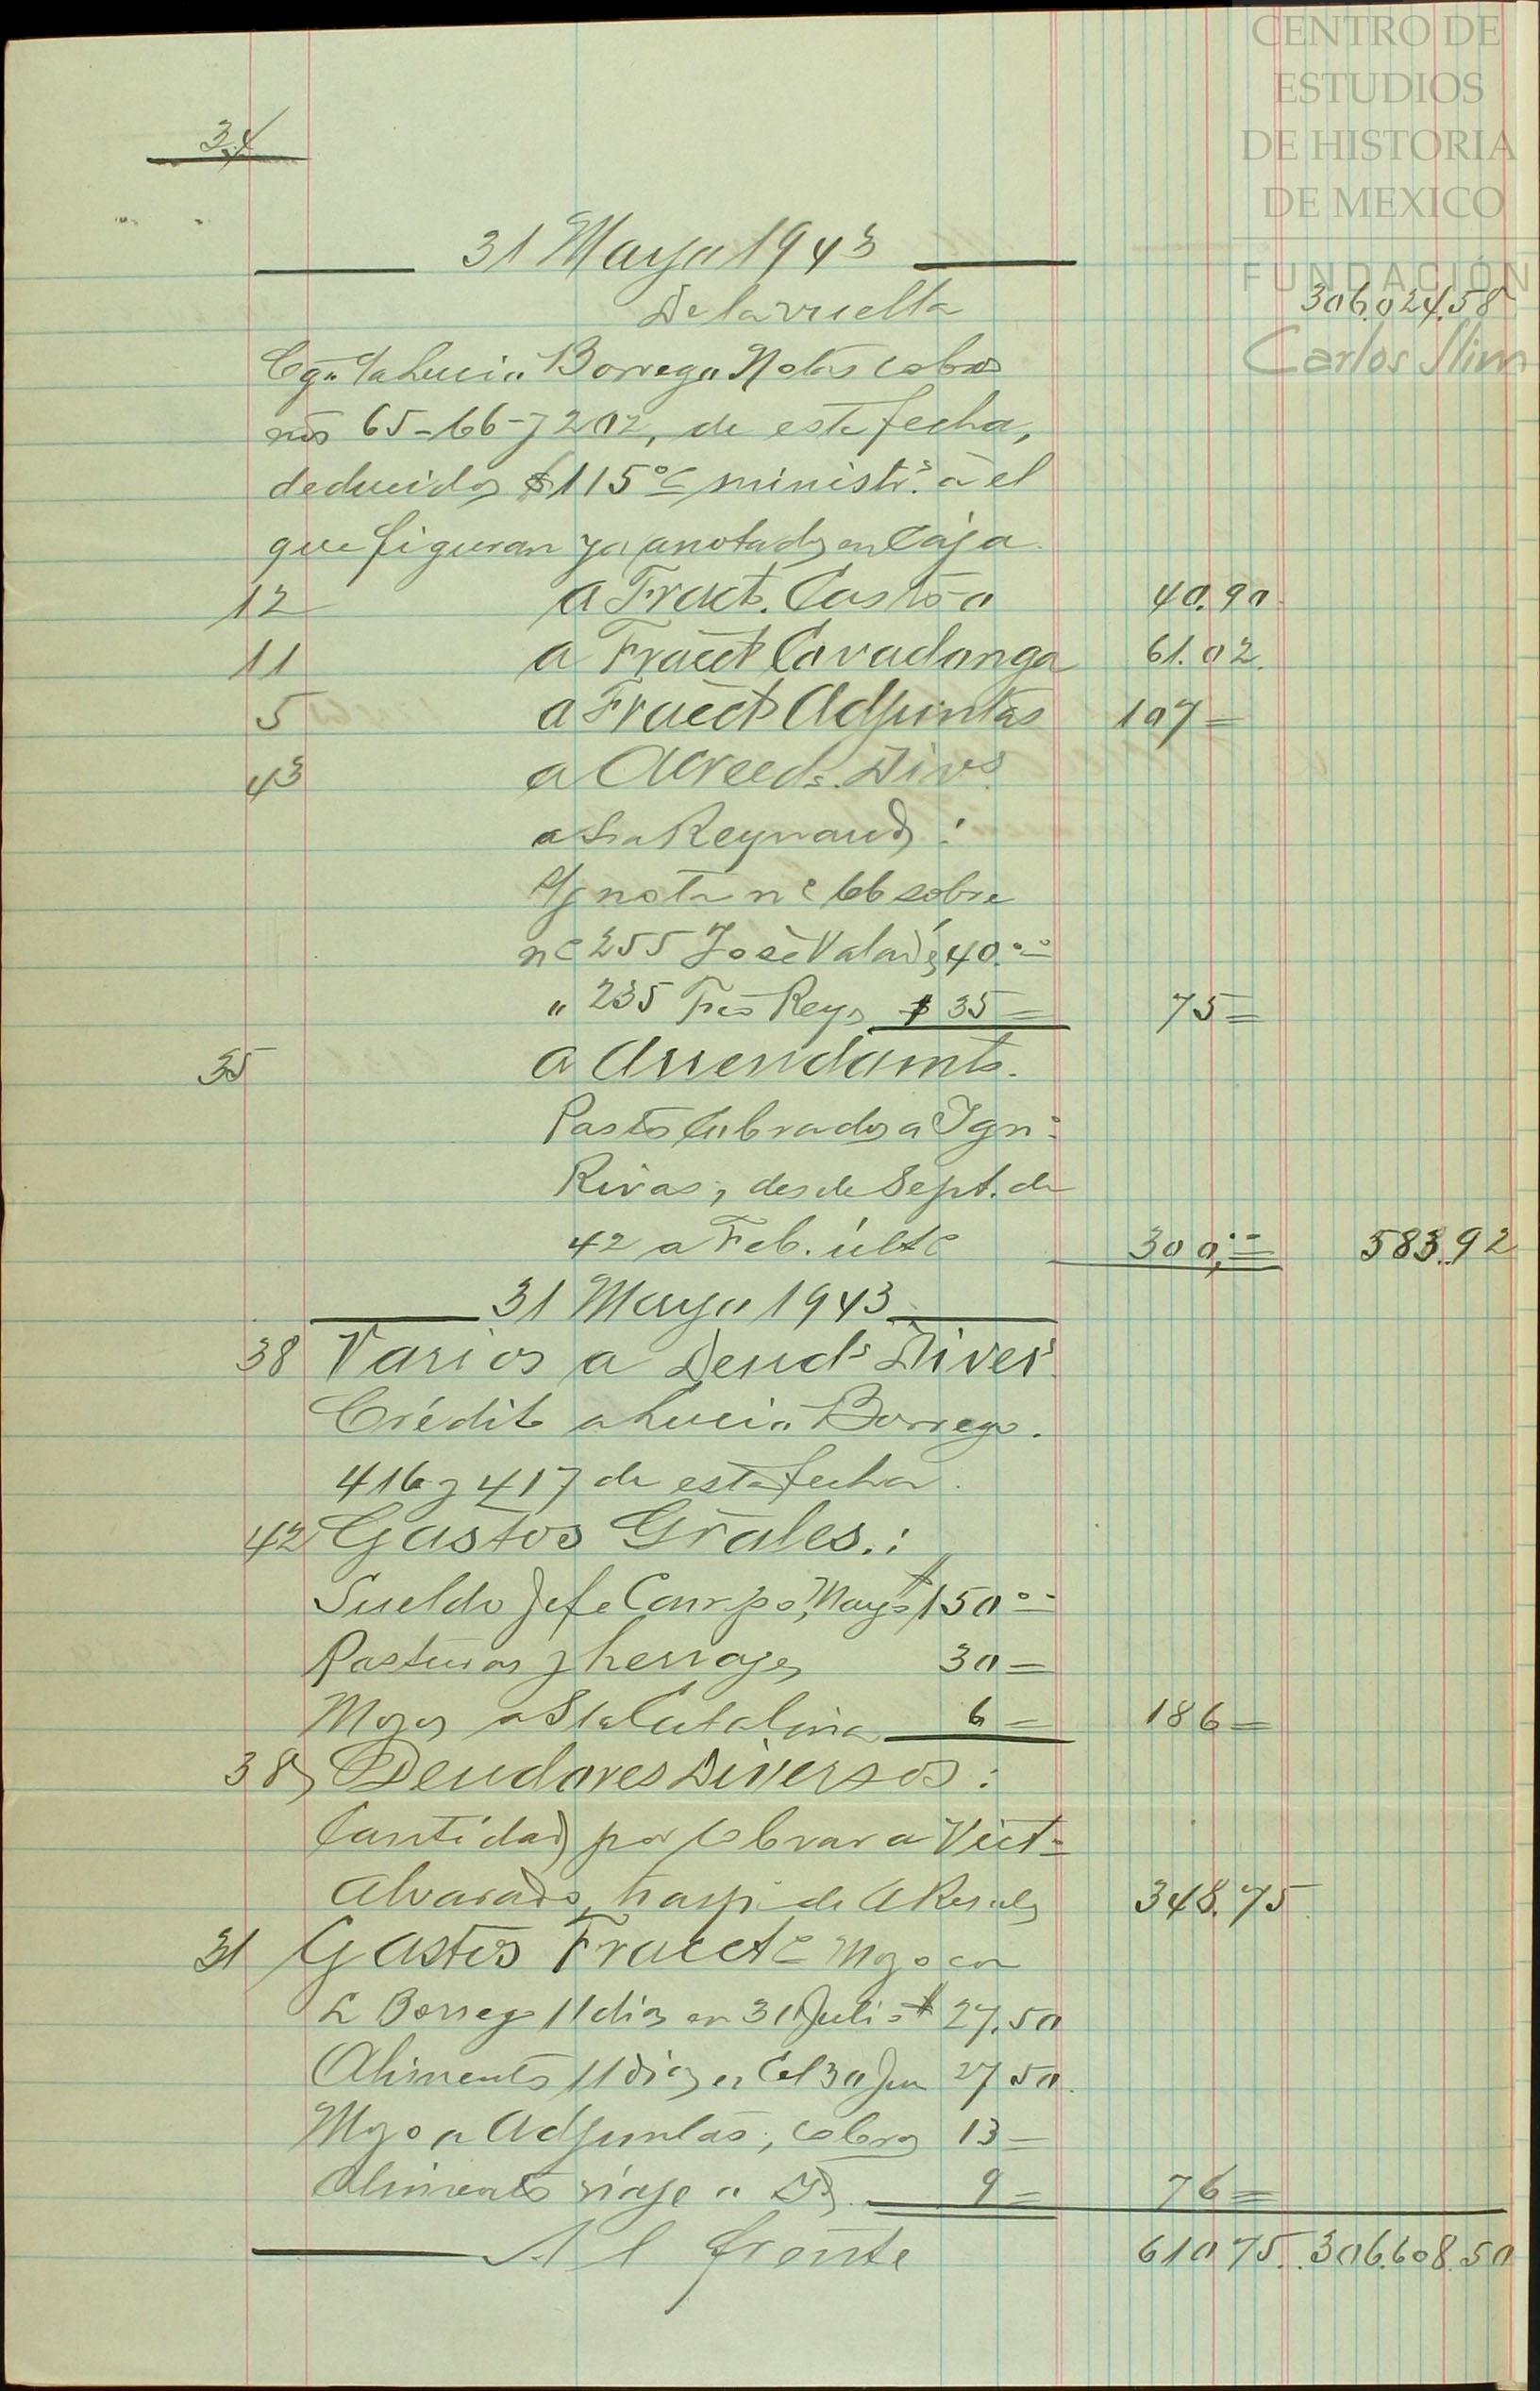 CENTRO DE
ESTUDIOS
DE HISTORIA
DE MEXICO
FUNDACIÓN
Carlos Slim
34
31 Mayo 1943
De la vuelta 306.024.58
Lucio Borrego Notas cobros
nos 65-66-y 202, de esta fecha,
deducidos $115.00 ministr.s a el
que figuran ya anotados en Caja.
12 a Fract. Castro a 40.90
11 a Fracct Covadonga 61.02.
5 a Fracct Adjuntas 107=
43 a Acreeds. Divs.
a Sra Reynaud :
nota nº 66 sobre
nº 255 José Valadés 40.00
" 235 Tres Reyes $ 35= 75=
35 a Arrendamto.
Pastos Cobrados a Ign:
Rivas, desde Sept. de
42 a Feb. últº 300,00 583.92
31 Mayo 1943
38 Varios a Deuds Divers.
Crédito a Lucio Borrego.
416 y 417 de esta fecha.
42 Gastos Grales.:
Sueldo Jefe Campo, Mayo $150.00
Pasturas y herrajes 30=
Mozos a Sta Catalina 6= 186=
38 Deudores Diversos :
Cantidad por cobrar a Vict=
Alvarado, trasp. de A Rosales 348.75
31 Gastos Fracctº Mozo con
L Borrego 11 dias en 31 Julio $ 27.50
Alimentos 11 dias en el 30 Jun 27.50.
Mozo a Adjuntas, cobros 13=
Alimento viaje a 9= 76=
Al frente 610 75. 306.608.50